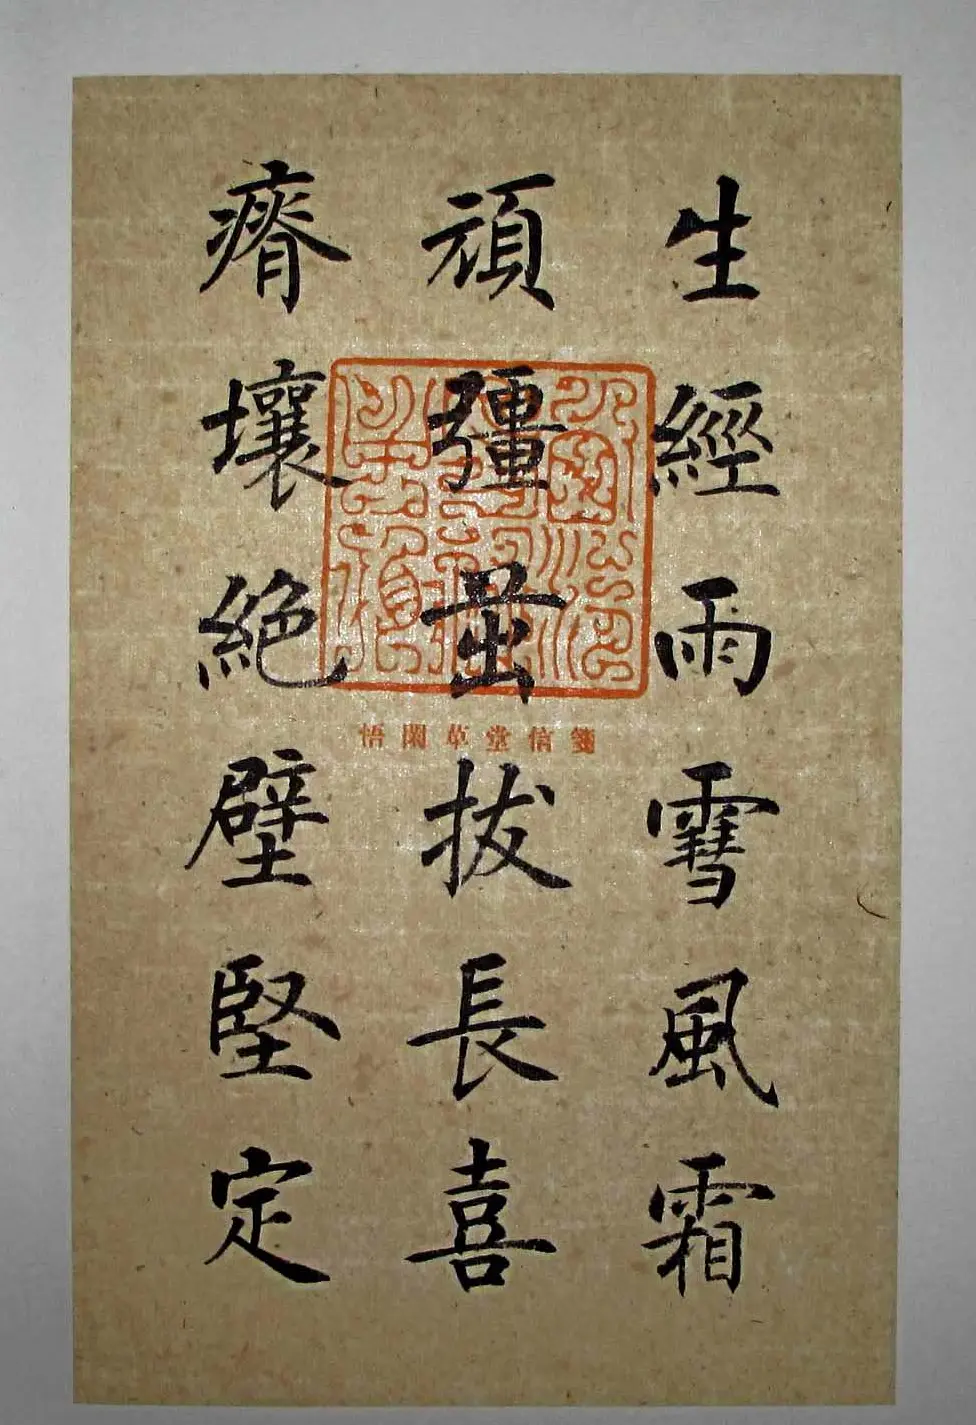 生經雨雪風霜
頑彊茁拔長喜
瘠壤絕壁堅定
箋信堂草閑悟